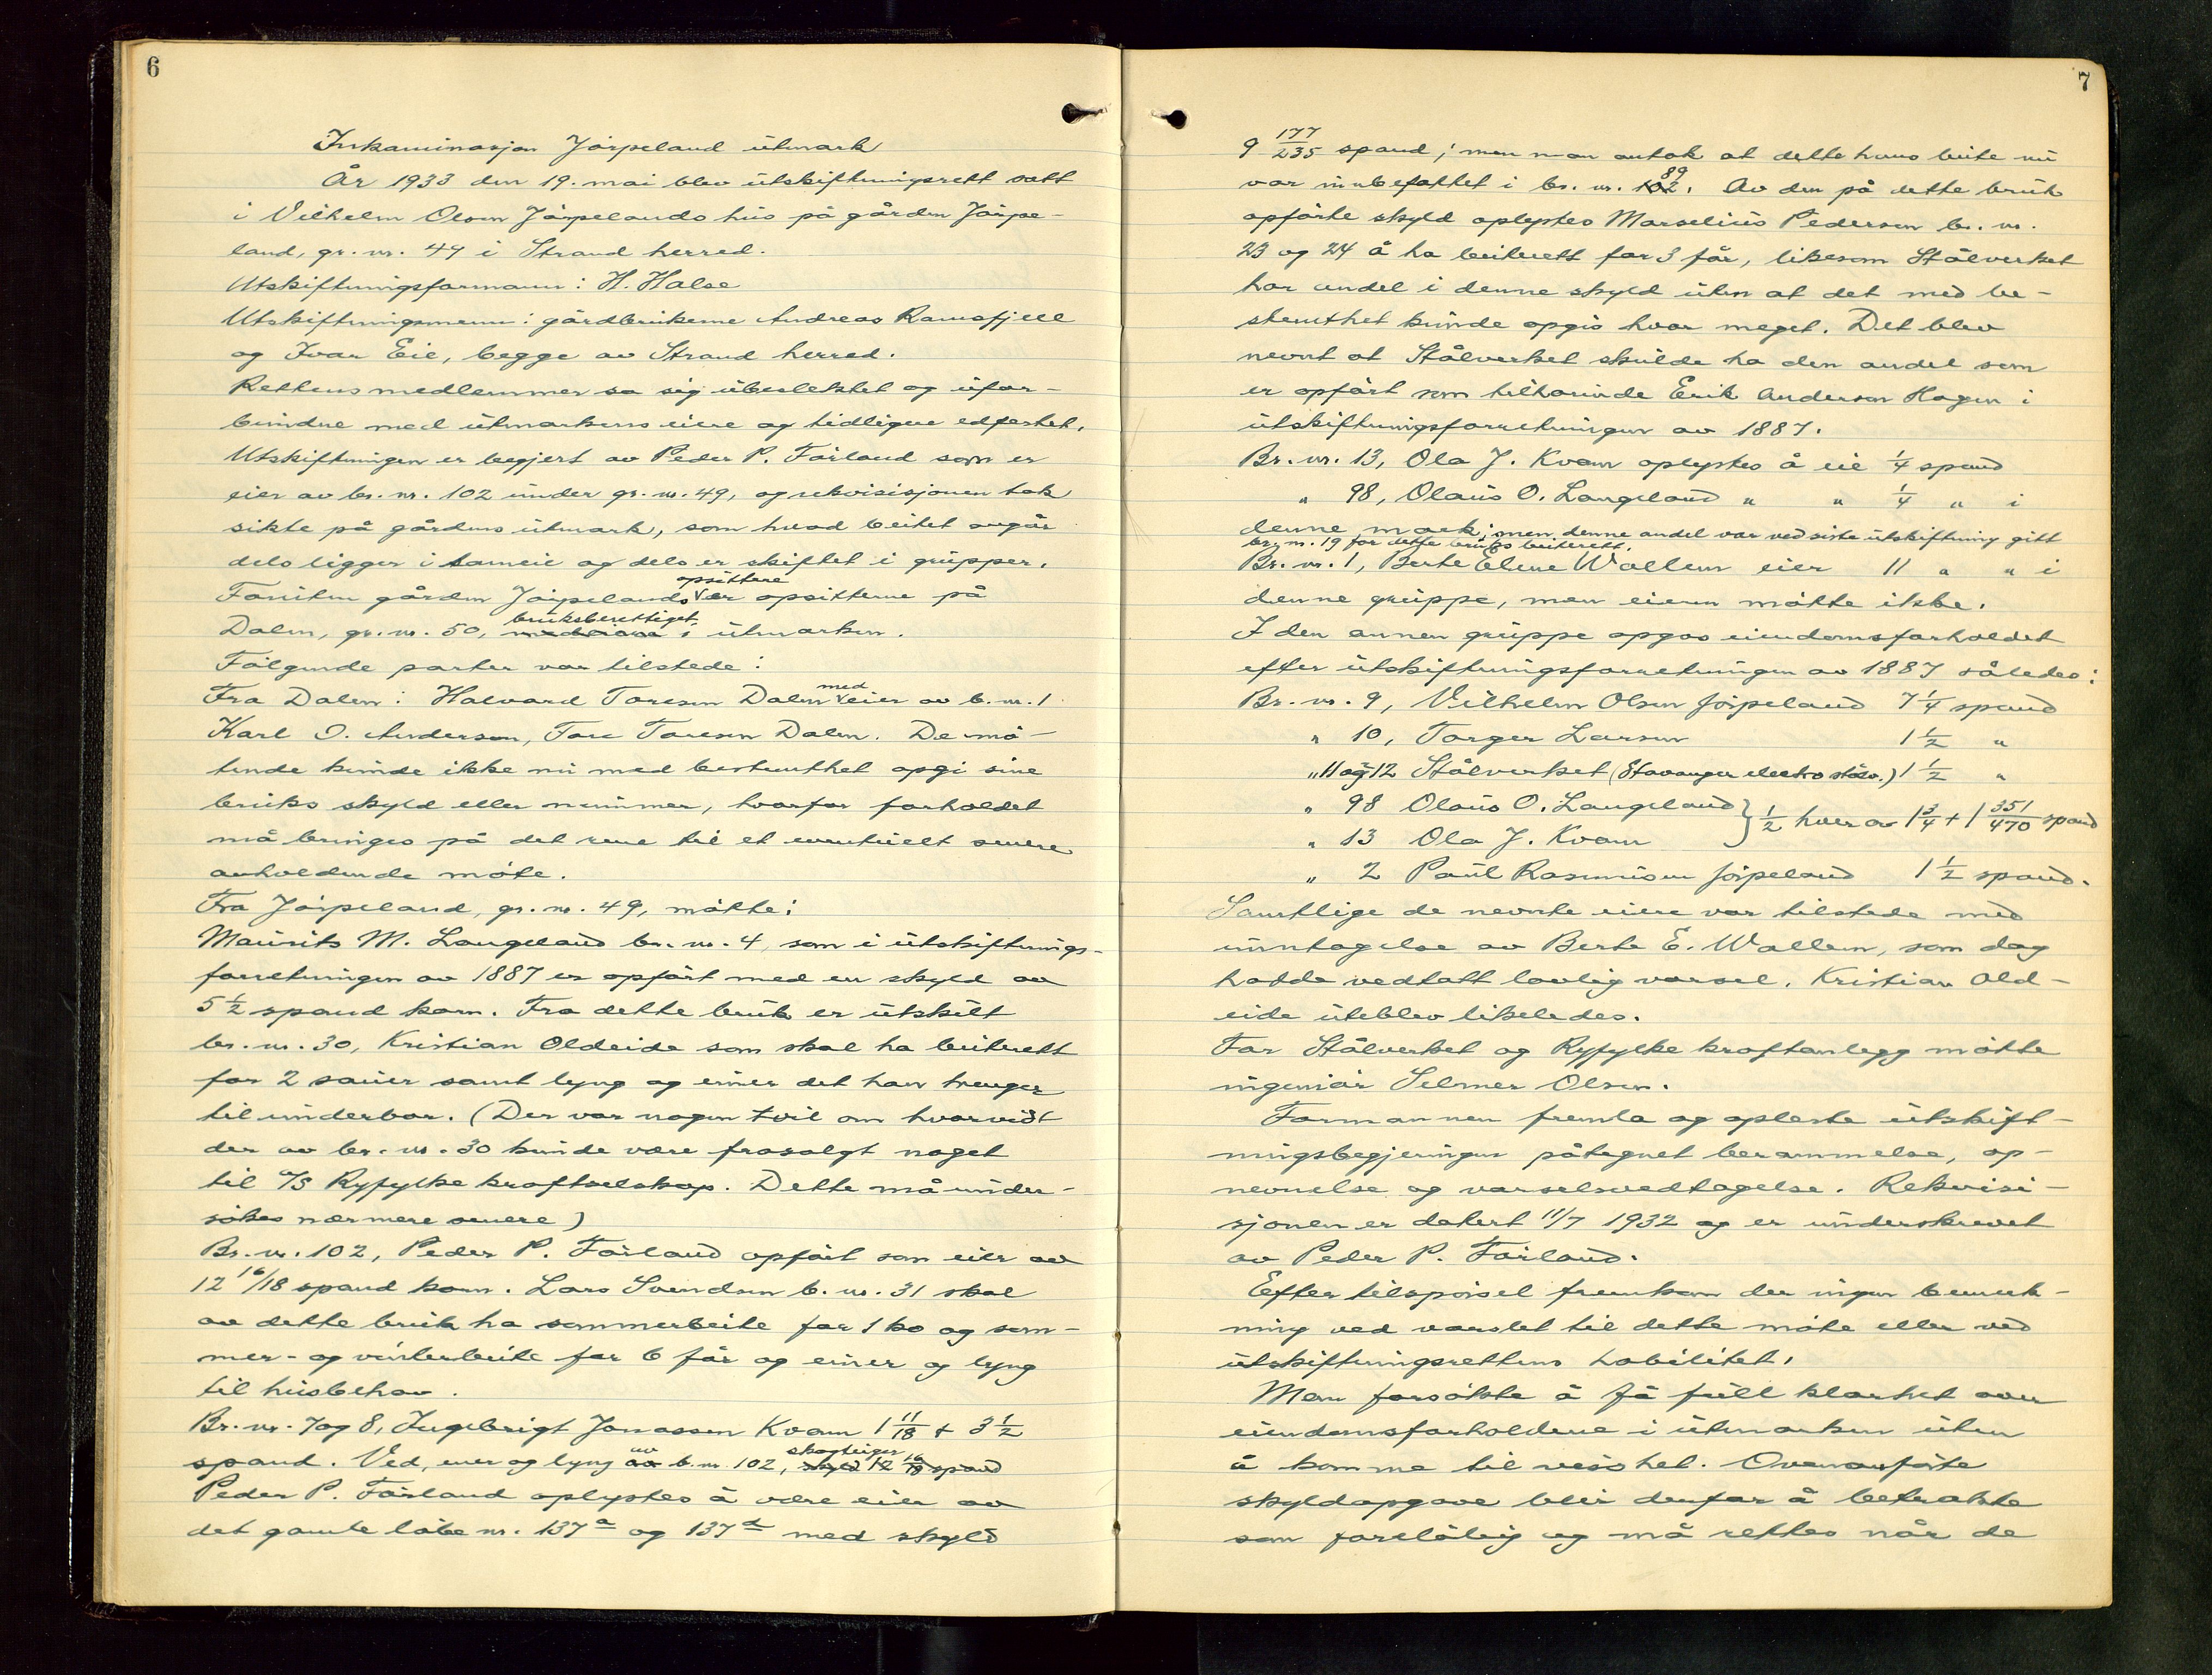 6
Inkaminasjon Jørpeland utmark
År 1933 den 19. mai blev utskiftningsrett satt
i Vilhelm Olsen Jørpelands hus på gården Jørpe-
land, gr. nr. 49 i Strand herred.
Utskiftningsformann: H. Halse
Utskiftningsmenn: gårdbrukerne Andreas Ramsfjell
og Ivar Eie, begge av Strand herred.
Rettens medlemmer sa sig ubeslektet og ufor-
bundne med utmarkens eiere og tidligere edfestet.
Utskiftningen er begjert av Peder P. Førland som er
eier av br. nr. 102 under gr. nr. 49, og rekvisisjonen tok
sikte på gårdens utmark, som hvad beitet angår
dels ligger i sameie og dels er skiftet i grupper.
Foruten gården Jørpelands opsittere er opsitterne på
Dalen, gr. nr. 50, bruksberettiget i utmarken.
Følgende parter var tilstede:
Fra Dalen: Halvard Toresen Dalen med eier av b. nr. 1
Karl O. Anderson, Tore Toresen Dalen. De mø-
tende kunde ikke nu med bestemthet opgi sine
bruks skyld eller nummer, hvorfor forholdet
må bringes på det rene til et eventuelt senere
anholdende møte.
Fra Jørpeland, gr. nr. 49, møtte:
Maurits M. Langeland br. nr. 4, som i utskiftnings-
forretningen av 1887 er opført med en skyld av
5 1/2 spand korn. Fra dette bruk er utskilt
br. nr. 30, Kristian Oldeide som skal ha beiterett
for 2 sauer samt lyng og einer det han trenger
til underbor. (Der var nogen tvil om hvorvidt
der av br. nr. 30 kunde være frasolgt noget
til A/S Ryfylke kraftselskap. Dette må under-
søkes nærmere senere)
Br. nr. 102, Peder P. Førland opført som eier av
12 16/18 spand korn. Lars Svendsen b. nr. 31 skal
av dette bruk ha sommerbeite for 1 ko og som-
mer- og vinterbeite for 6 får og einer og lyng
til husbehov.
Br. nr. 7 og 8, Ingebrigt Jonassen Kvam 1 11/18 + 3 1/2
spand. Ved, ener og lyng av b. nr. 102, skogteiger 12 16/18 spand
Peder P. Førland oplystes å være eier av
det gamle løbe nr. 137 a og 137 d med skyld
7
9 177/235 spand; men man antok at dette hans beite nu
var innbefattet i br. nr. 89. Av den på dette bruk
opførte skyld oplystes Marselius Pedersen br. nr.
23 og 24 å ha beiterett for 3 får, likesom Stålverket
har andel i denne skyld uten at det med be-
stemthet kunde opgis hvor meget. Det blev
nevnt at Stålverket skulde ha den andel som
er opført som tilhørende Erik Anderson Hagen i
utskiftningsforretningen av 1887.
Br. nr. 13, Ola J. Kvam oplystes å eie 1/4 spand
" 98, Olaus O. Langeland " " 1/4 " i
denne mark; men denne andel var ved siste utskiftning gitt
br. nr. 19 for dette bruks beiterett.
Br. nr. 1, Berte Elene Wallem eier 11 " " i
denne gruppe, men eieren møtte ikke.
I den annen gruppe opgas eiendomsforholdet
efter utskiftningsforretningen av 1887 således:
Br. nr. 9, Vilhelm Olsen Jørpeland 7 1/4 spand
" 10, Torger Larsen 1 1/2 "
" 11 og 12 Stålverket (Stavanger electro stålv.) 1 1/2 "
" 98 Olaus O. Langeland } 1/2 hver av 1 3/4 + 1 351/470 spand
" 13 Ola J. Kvam
" 2 Paul Rasmussen Jørpeland 1 1/2 spand.
Samtlige de nevnte eiere var tilstede med
unntagelse av Berte E. Wallem, som dog
hadde vedtatt lovlig varsel. Kristian Old-
eide uteblev likeledes.
For Stålverket og Ryfylke kraftanlegg møtte
ingeniør Selmer Olsen.
Formannen fremla og opleste utskift-
ningsbegjeringen påtegnet berammelse, op-
nevnelse og varselsvedtagelse. Rekvisi-
sjonen er datert 11/7 1932 og er underskrevet
av Peder P. Førland.
Efter tilspørsel fremkom der ingen bemerk-
ning ved varslet til dette møte eller ved
utskiftningsrettens habilitet.
Man forsøkte å få full klarhet over
eiendomsforholdene i utmarken uten
å komme til visshet. Ovenanførte
skyldopgave blir derfor å betrakte
som foreløbig og må rettes når de